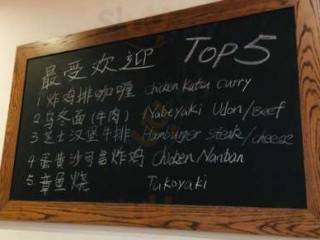 最受欢迎 TOP5
1 炸鸡排咖喱 chicken Katsu curry
2 乌冬面(牛肉) Nabeyaki Udon/Beef
3 芝士汉堡牛排 Hamburger Steak/cheese
4 蛋黄沙司炸鸡 Chicken Nanban
5 章鱼烧 Takoyaki